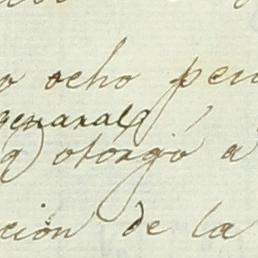 o ocho pen
genaral
q) otorgó a
ción de la